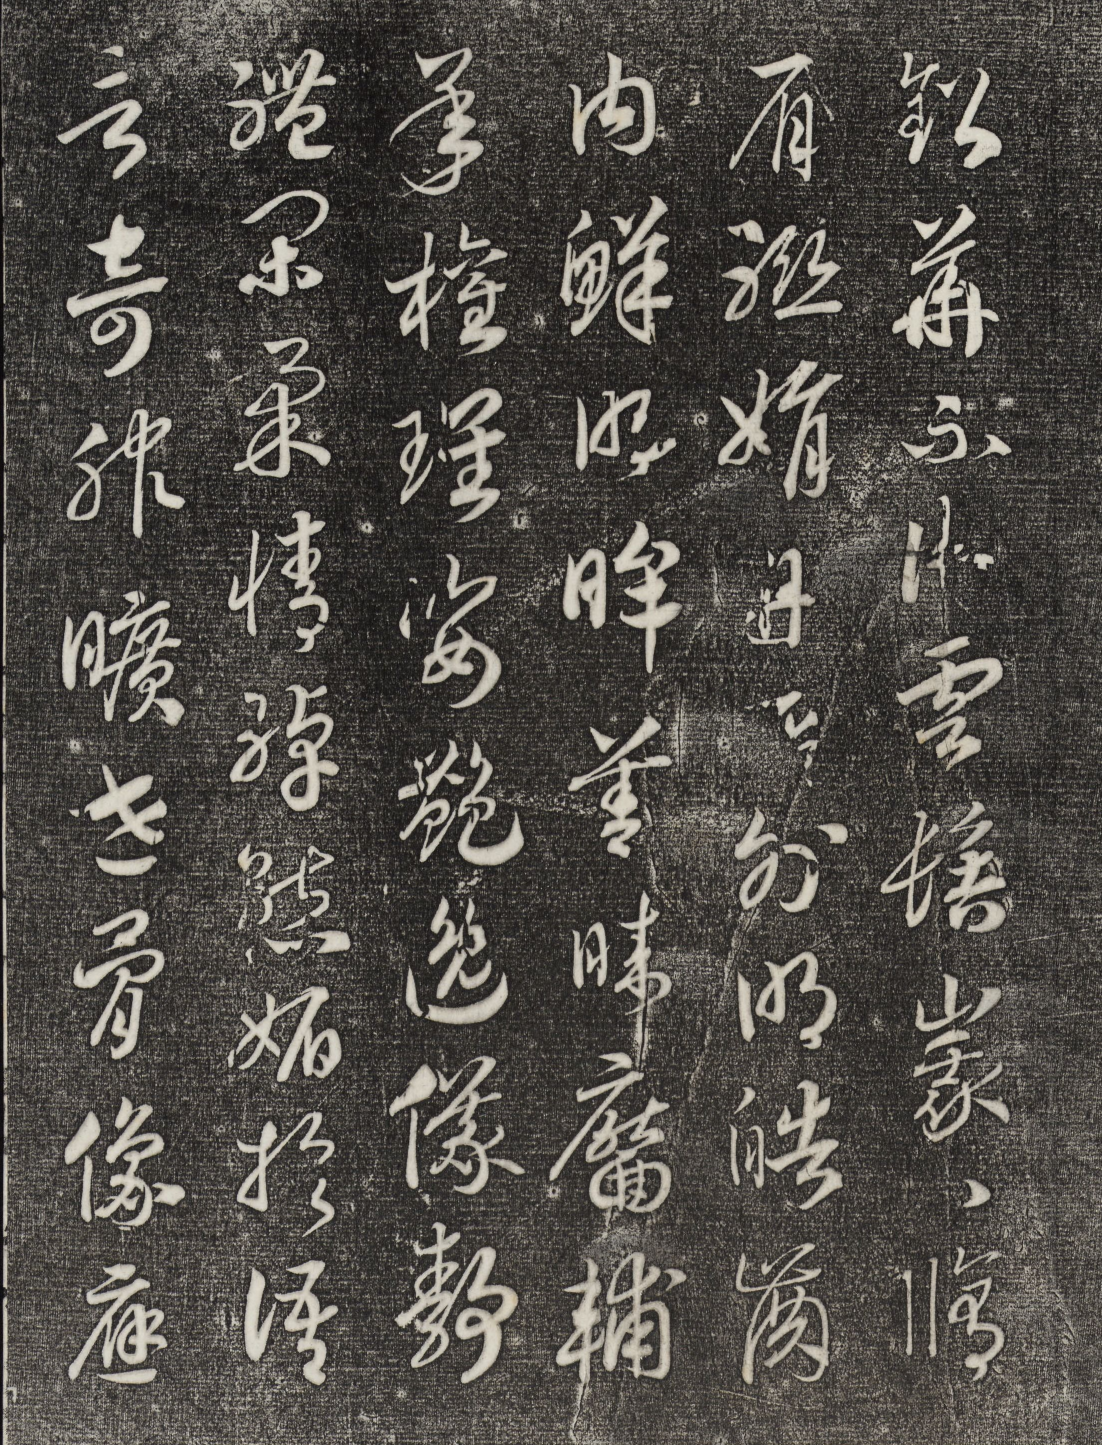 鉛華不御雲髻峩〻脩
眉聯娟丹脣外朗皓齒
內鮮明眸善睞靨輔
承權瓌姿艷逸儀靜
體閑柔情綽態媚於語
言奇服曠世骨像應